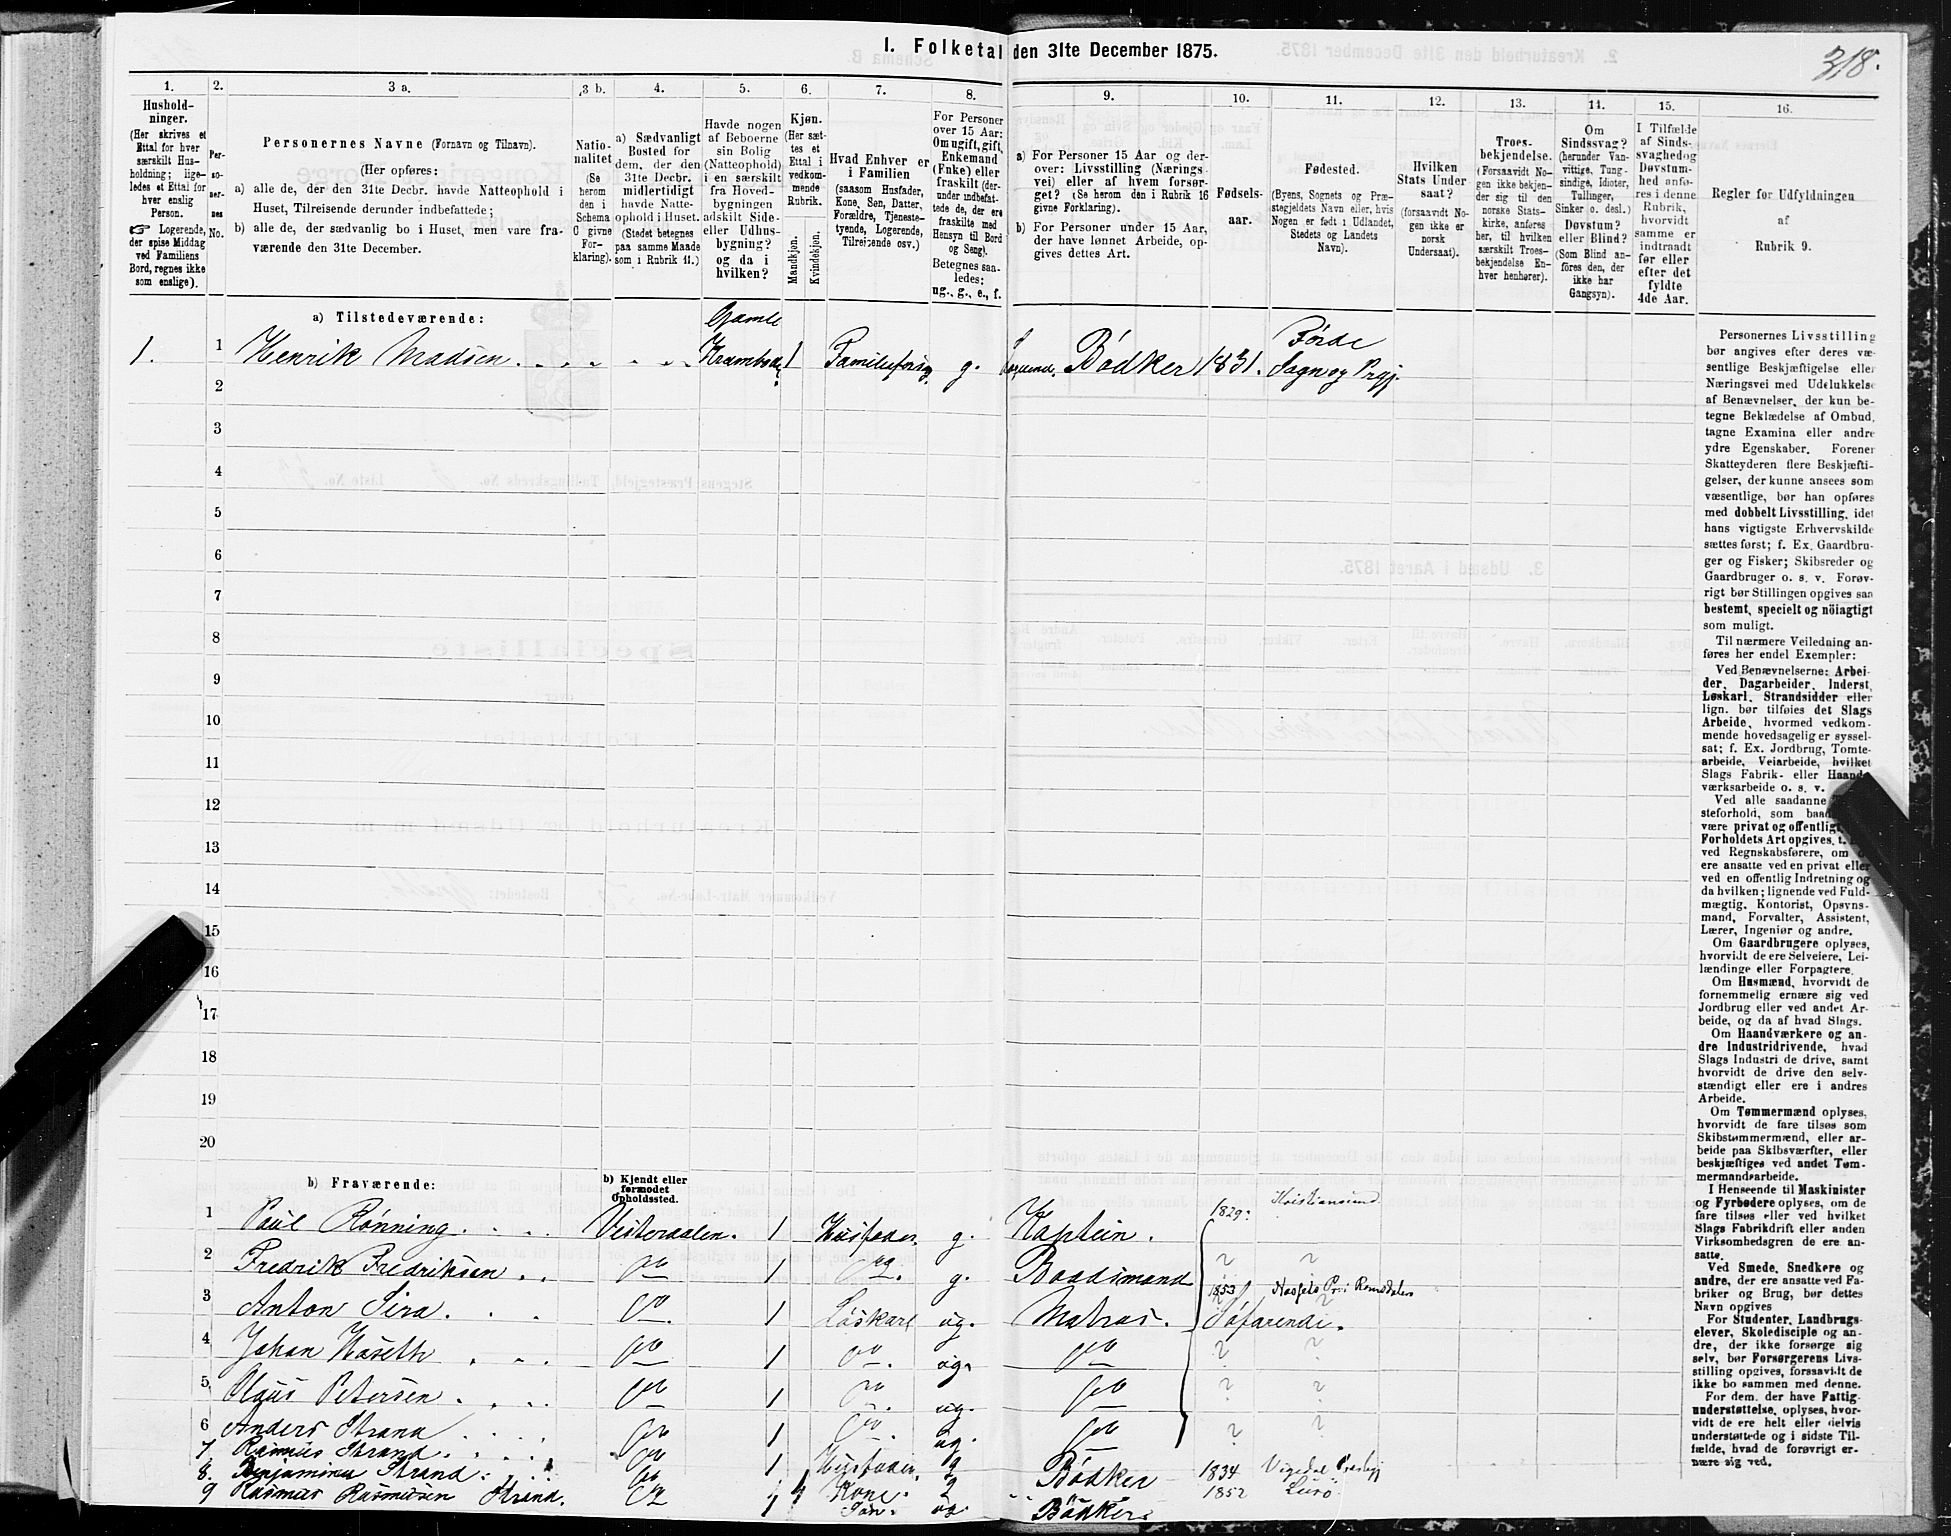 I. Folketal den 31te December 1875.
318.
1.
Hushold-
ninger.
(Her skrives et
Ettal for hver
særskilt Hus-
holdning; lige-
ledes et Ettal for
hver enslig
Person.
☞ Logerende,
der spise Middag
ved Familiens
Bord, regnes ikke
som enslige).
2.
Per-
so-
ner-
nes
No.
3 a.
Personernes Navne (Fornavn og Tilnavn).
(Her opføres:
a) alle de, der den 31te Decbr. havde Natteophold i
Huset, Tilreisende derunder indbefattede;
b) alle de, der sædvanlig bo i Huset, men vare fra-
værende den 31te December.
3 b.
Natio-
nalitet
(Se
herom
den i
Schema
C givne
For-
klaring).
4.
a) Sædvanligt
Bosted for
dem, der den
31te Decbr.
midlertidigt
havde Natte-
ophold i Huset.
(Stedet betegnes
paa samme Maade
som i Rubrik 11.)
5.
Havde nogen
af Beboerne
sin Bolig
(Natteophold)
i en særskilt
fra Hoved-
bygningen
adskilt Side-
eller Udhus-
bygning?
og da i
hvilken?
6.
Kjøn.
(Her sæt-
tes et
Ettal i
vedkom-
mende
Rubrik.
Mandkjøn.
Kvindekjøn.
7.
Hvad Enhver er
i Familien
(saasom Husfader,
Kone, Søn, Datter,
Forældre, Tjeneste-
tyende, Logerende,
Tilreisende osv.)
8.
For Personer
over 15 Aar:
Om ugift, gift,
Enkemand
(Enke) eller
fraskilt (der-
under indbefat-
tede de, der ere
fraskilte med
Hensyn til Bord
og Seng).
Betegnes saa-
ledes:
ug., g., e., f.
9.
a) For Personer 15 Aar og der-
over: Livsstilling (Nærings-
vei) eller af hvem forsør-
get? (Se herom den i Rubrik 16
givne Forklaring).
b) For Personer under 15 Aar,
der have lønnet Arbeide, op-
gives dettes Art.
10.
Fødsels-
aar.
11.
Fødested.
(Byens, Sognets og Præ-
stegjeldets Navn eller, hvis
Nogen er født i Udlandet,
Stedets og Landets
Navn).
12.
Hvilken
Stats Under
saat?
(forsaavidt No-
gen ikke er
norsk
Undersaat).
13.
Troes-
bekjendelse.
(Forsaavidt No-
gen ikke bekjen-
der sig til den
norske Stats-
kirke, anføres
her, til hvilken
særskilt Troes-
bekjendelse En-
hver henhører).
14.
Om
Sindssvag?
(herunder Van-
vittige, Tung-
sindige, Idioter,
Tullinger,
Sinker o. desl.)
Døvstum?
eller Blind?
(Som Blind an-
føres den, der
ikke har
Gangsyn).
15.
I Tilfælde
af Sinds-
svaghed og
Døvstum-
hed anfø-
res i denne
Rubrik,
hvorvidt
samme er
indtraadt
før eller
efter det
fyldte
4de Aar.
16.
Regler for Udfyldningen
af
Rubrik 9.
a) Tilstedeværende:
1. 1 Henrik Madsen Gamle Krambod 1 g. Bødker 1831. Førde Sogn og Prgj.
2
3
4
5
6
7
8
9
10
11
12
13
14
15
16
17
18
19
20
b) Fraværende:
b) Kjendt eller
formodet
Opholdssted.
1 Paul Rønning. Vesteraalen. 1 Husfader g. Kaptein. 1829. Kristiansund
2 Fredrik Fredriksen do 1 do. g. Baadsmand ? ?
3 Anton Sira do 1 Løskarl ug. Matros. 1853 Søfarende.
4 Johan Haseth do 1 do. ug. do ? ?
5 Claus Petersen do 1 do. ug. do ? ?
6 Anders Strand do 1 do. ug. do ? ?
7 Rasmus Strand. do 1 Husfader g Bødker 1834
8. Strand do 1 Kone. g 1852 Lurø
9 Rasmus Rasmusen Strand. do 1 Søn. ug. Bødker.
Personernes Livsstilling
bør angives efter deres væ-
sentlige Beskjæftigelse eller
Næringsvei med Udelukkelse
af Benævnelser, der kun be-
tegne Beklædelse af Ombud,
tagne Examina eller andre
ydre Egenskaber. Forener
Skatteyderen flere Beskjæfti-
gelser, der kunne ansees som
væsentlige, bør han opføres
med dobbelt Livsstilling, idet
hans vigtigste Erhvervskilde
sættes først; f. Ex. Gaardbru-
ger og Fisker; Skibsreder og
Gaardbruger o. s. v. Forøv-
rigt bør Stillingen opgives saa
bestemt, specielt og nöiagtigt
som muligt.
Til nærmere Veiledning an-
føres her endel Exempler:
Ved Benævnelserne: Arbei-
der, Dagarbeider, Inderst,
Løskarl, Strandsidder eller
lign. bør tilføies det Slags
Arbeide, hvormed vedkom-
mende hovedsagelig er syssel-
sat; f. Ex. Jordbrug, Tomte-
arbeide, Veiarbeide, hvilket
Slags Fabrik- eller Haand-
værksarbeide o. s. v.
Ved alle saadanne
steforhold, som
være privat og offentlig
Forholdets Art opgives, t.
ved Regnskabsførere, om
ere ansatte ved en privat eller
ved en offentlig Indretning og
da hvilken; lignende ved Fuld-
mægtig, Kontorist, Opsyns-
mand, Forvalter, Assistent,
Lærer, Ingeniør og andre.
Om Gaardbrugere oplyses,
hvorvidt de ere Selveiere, Lei-
lændinge eller Forpagtere.
Om Husmænd, hvorvidt de
fornemmelig ernære sig ved
Jordbrug eller ved andet Ar-
beide, og da af hvad Slags.
Om Haandværkere og an-
dre Industridrivende, hvad
Slags Industri de drive, samt
hvorvidt de drive den selv-
stændigt eller ere i andres
Arbeide.
Om Tømmermænd oplyses,
hvorvidt de fare tilsøs som
Skibstømmermænd, eller ar-
beide paa Skibsværfter, eller
beskjæftiges ved andet Tøm-
mermandsarbeide.
I Henseende til Maskinister
og Fyrbødere oplyses, om de
fare tilsøs eller ved hvilket
Slags Fabrikdrift eller anden
Virksomhedsgren de ere an-
satte.
Ved Smede, Snedkere og
andre, der ere ansatte ved Fa-
briker og Brug, bør dettes
Navn opgives
For Studenter, Landbrugs-
elever, Skoledisciple og an-
dre, der ikke forsørge sig
selv, bør Forsørgerens Livs-
stilling opgives, forsaavidt de
ikke bo sammen med denne.
For dem, der have Fattig-
understøttelse, oplyses, hvor-
vidt de ere helt eller delvis
understøttede og i sidste Til-
fælde, hvad de forøvrigt er-
nære sig ved.